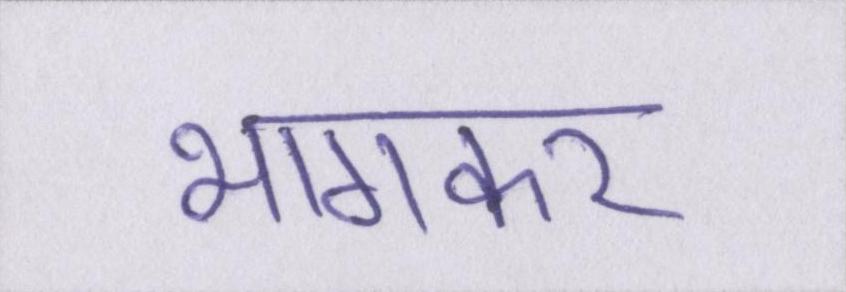 भागकर